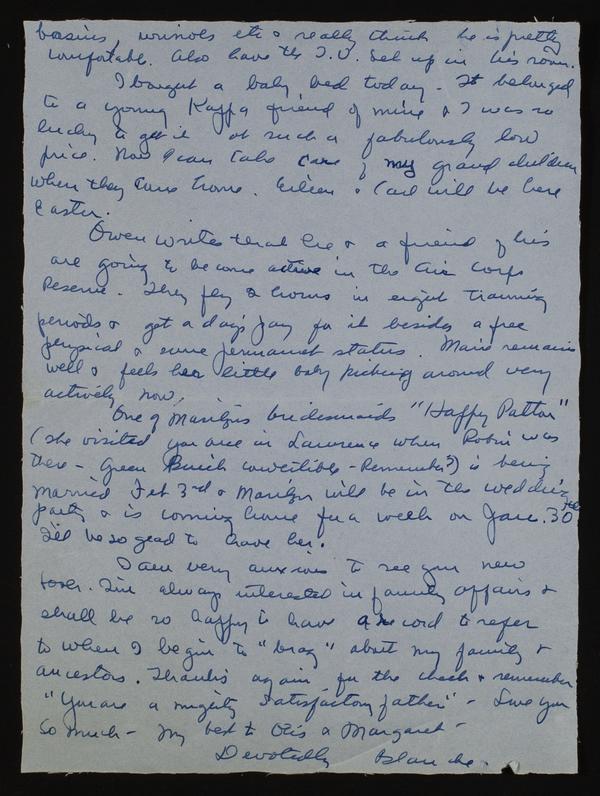 basins, urinals etc & really think he is pretty
comfortable. Also have the T.V. set up in his room.
I bought a baby bed today - It belonged
to a young Kappa friend of mine & I was so
lucky to get it at such a fabulously low
price. Now I can take care of my grand children
when they come home. Eileen & Carl will be here
Easter.
Owen writes that he & a friend of his
are going to become active in the Air Corps
Reserve. They fly 2 hours in eight training
periods & get a days pay for it besides a free
physical & some permanent status. Marie remains
well & feels her little baby kicking around very
actively now.
One of Marilyn's bridesmaids "Happy Patton"
(she visited you once in Lawrence when Robin was
there - Green Buick convertible - Remember?) is being
married Feb 3rd & Marilyn will be in the wedding
party & is coming home for a week on Jan. 30th
I'll be so glad to have her.
I am very anxious to see your new
. I'm always interested in family affairs &
shall be so happy to have a record to refer
to when I begin to "brag" about my family &
ancestors. Thanks again for the check & remember
"You are a mighty satisfactory father" - Love you
so much - My best to Otis & Margaret -
Devotedly Blanche.